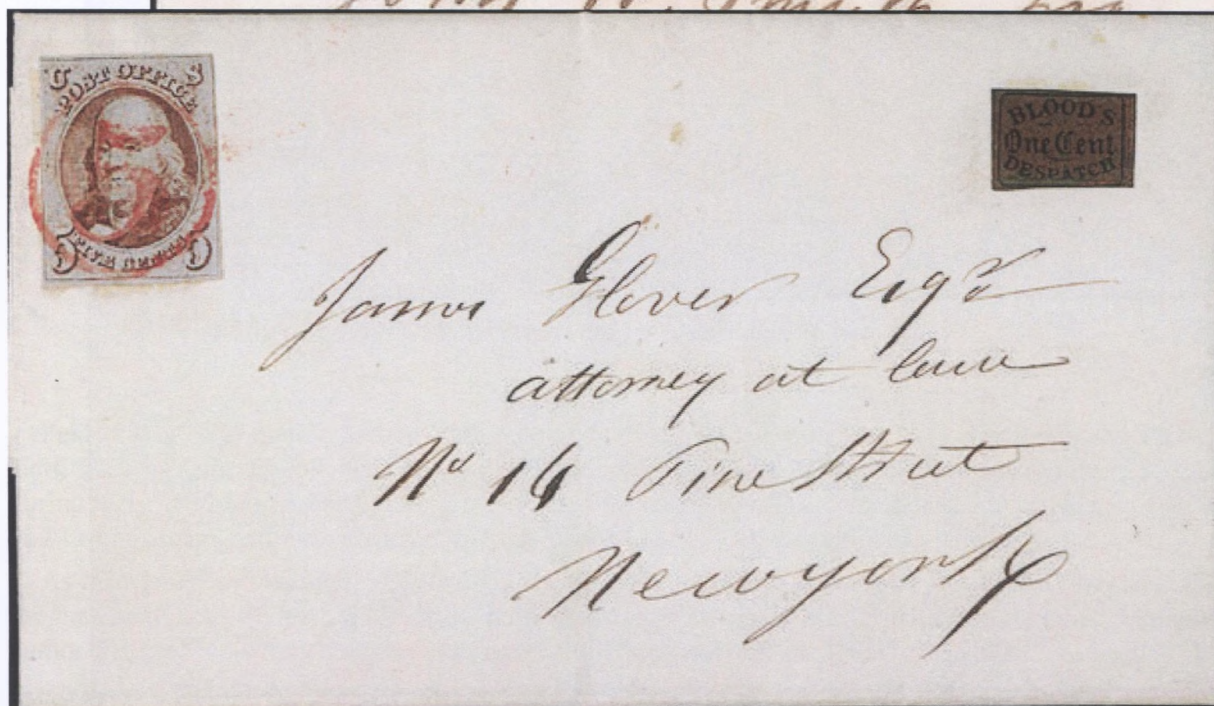 5 5
POST OFFICE
FIVE CENTS
5 5
BLOOD'S
One Cent
DESPATCH
James Glover Esqr
attorney at law
No 16 Pine Street
New york